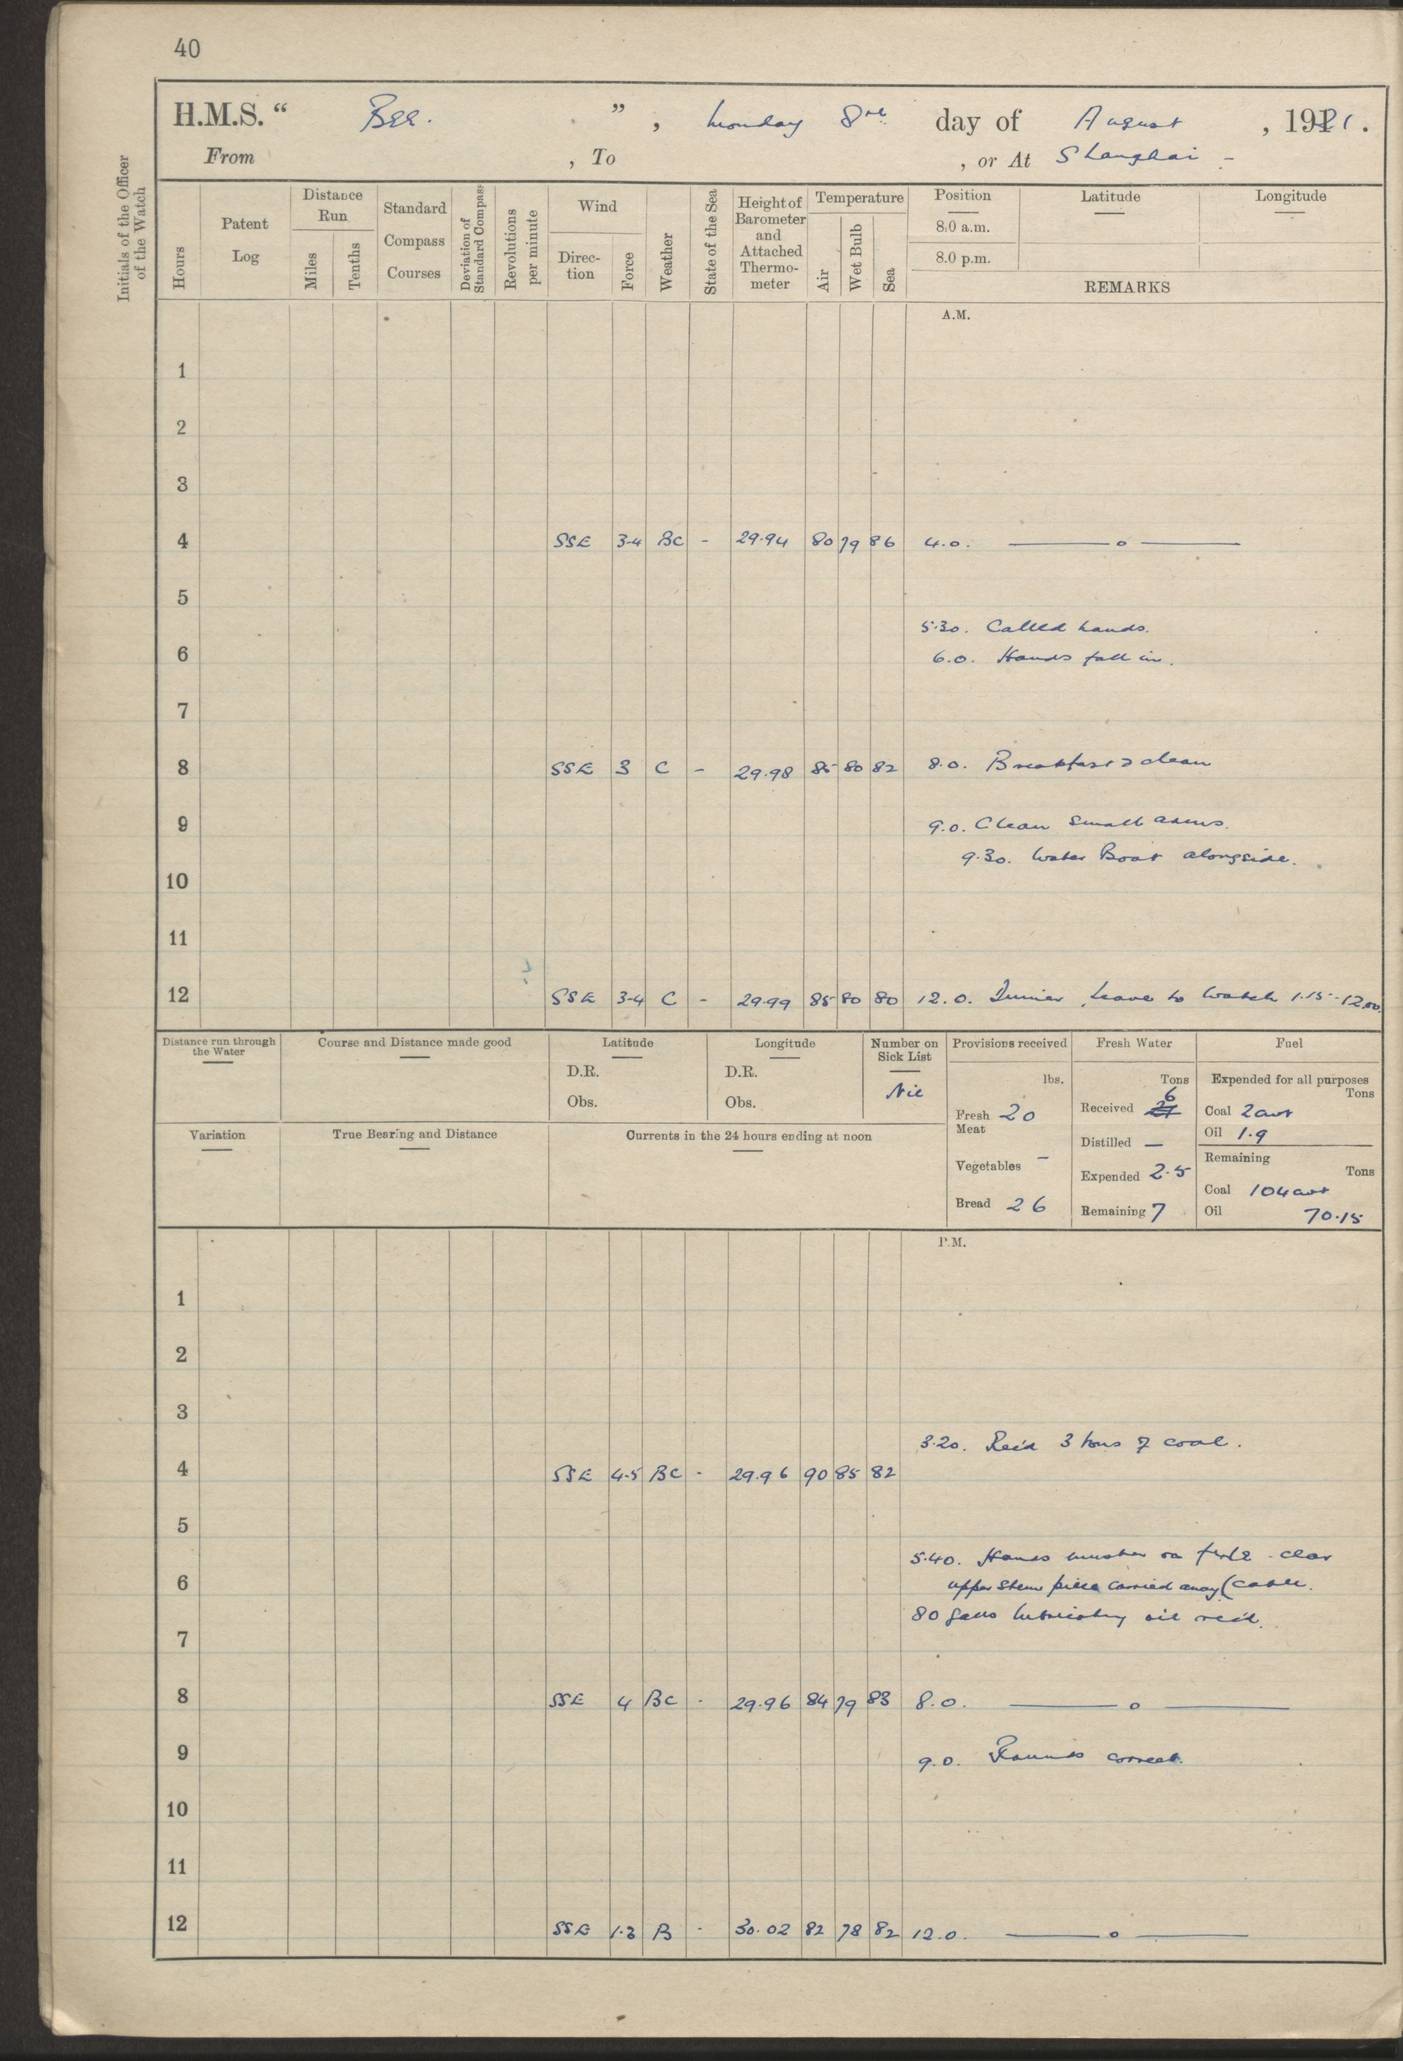 40
H.M.S. “ Bee. ” , Monday 8th day of August , 1921 .
From , To , or At Shanghai -
Initials of the Officer of the Watch
Hours
Patent Log
Distance Run
Miles
Tenths
Standard Compass Courses
Deviation of Standard Compass
Revolutions per minute
Wind
Direction
Force
Weather
State of the Sea
Height of Barometer and Attached Thermometer
Temperature
Air
Wet Bulb
Sea
Position
Latitude
Longitude
8.0 a.m.
8.0 p.m.
REMARKS
A.M.
1
2
3
4 SSE 3-4 BC - 29.94 80 79 86 4.0. —— o ——
5
5.30. Called hands.
6 6.0. Hands fall in.
7
8 SSE 3 C - 29.98 85 80 82 8.0. Breakfast & clean
9 9.0. Clean small arms.
9.30. Water Boat alongside.
10
11
12 SSE 3-4 C - 29.99 85 80 80 12.0. Dinner. Leave to watch 1.15 -
Distance run through the Water
Course and Distance made good
Latitude
D.R.
Obs.
Longitude
D.R.
Obs.
Number on Sick List
Nil
Provisions received
lbs.
Fresh Meat 20
Vegetables -
Bread 26
Fresh Water
Tons
Received 6
Distilled —
Expended 2.5
Remaining 7
Fuel
Expended for all purposes
Tons
Coal 2cwt
Oil 1.9
Remaining
Tons
Coal 104cwt
Oil 70.15
Variation
True Bearing and Distance
Currents in the 24 hours ending at noon
P.M.
1
2
3
3.20. Rec'd 3 tons of coal.
4 SSE 4.5 BC - 29.96 90 85 82
5
5.40. Hands muster on - clear
6 upper stem piece carried away (cable.
80 galls lubricating oil rec'd.
7
8 SSE 4 BC - 29.96 84 79 83 8.0. —— o ——
9 9.0. Rounds correct.
10
11
12 SSE 1.3 B - 30.02 82 78 82 12.0. —— o ——